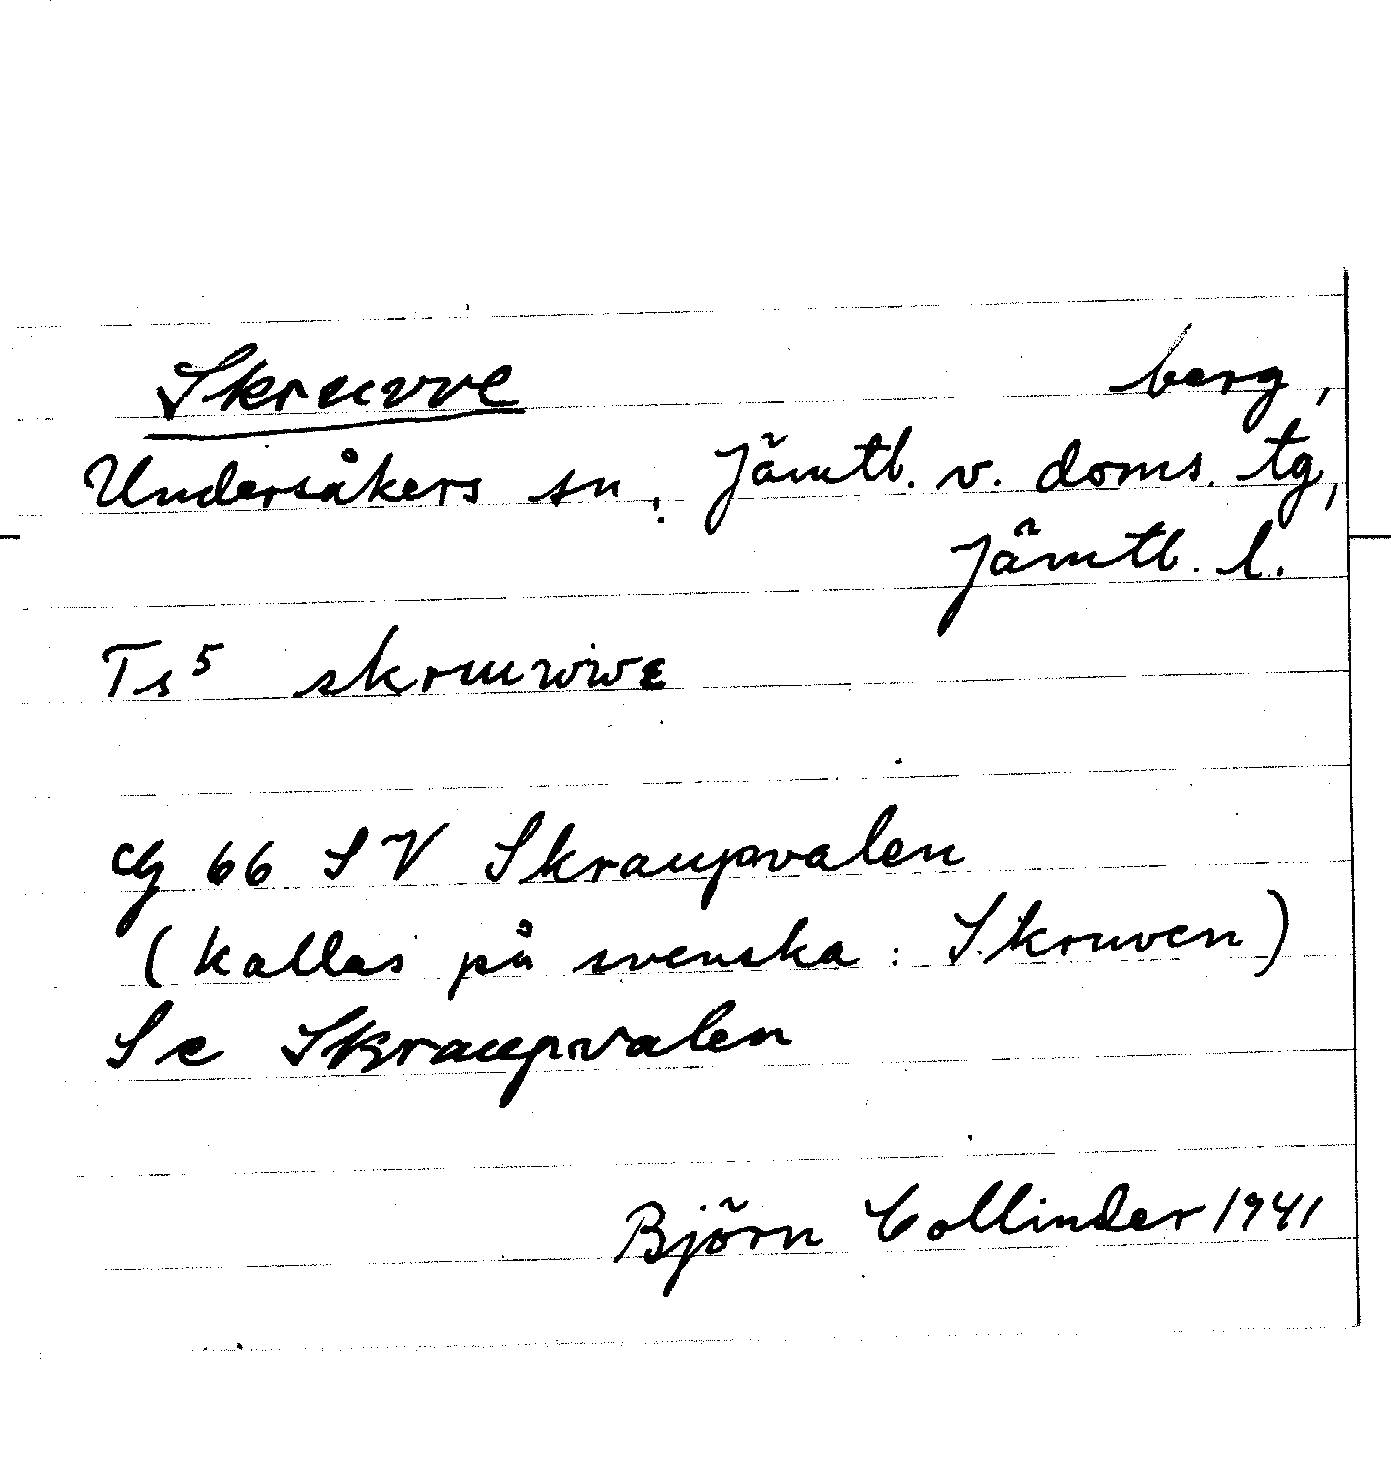 Skruvve berg,
Undersåkers sn, Jämtl. v. doms. tg,
Jämtl. l.
Ts⁵ skruwwε
Cg 66 SV Skraupvalen
(kallas på svenska: Skruven)
Se Skraupvalen
Björn Collinder 1941